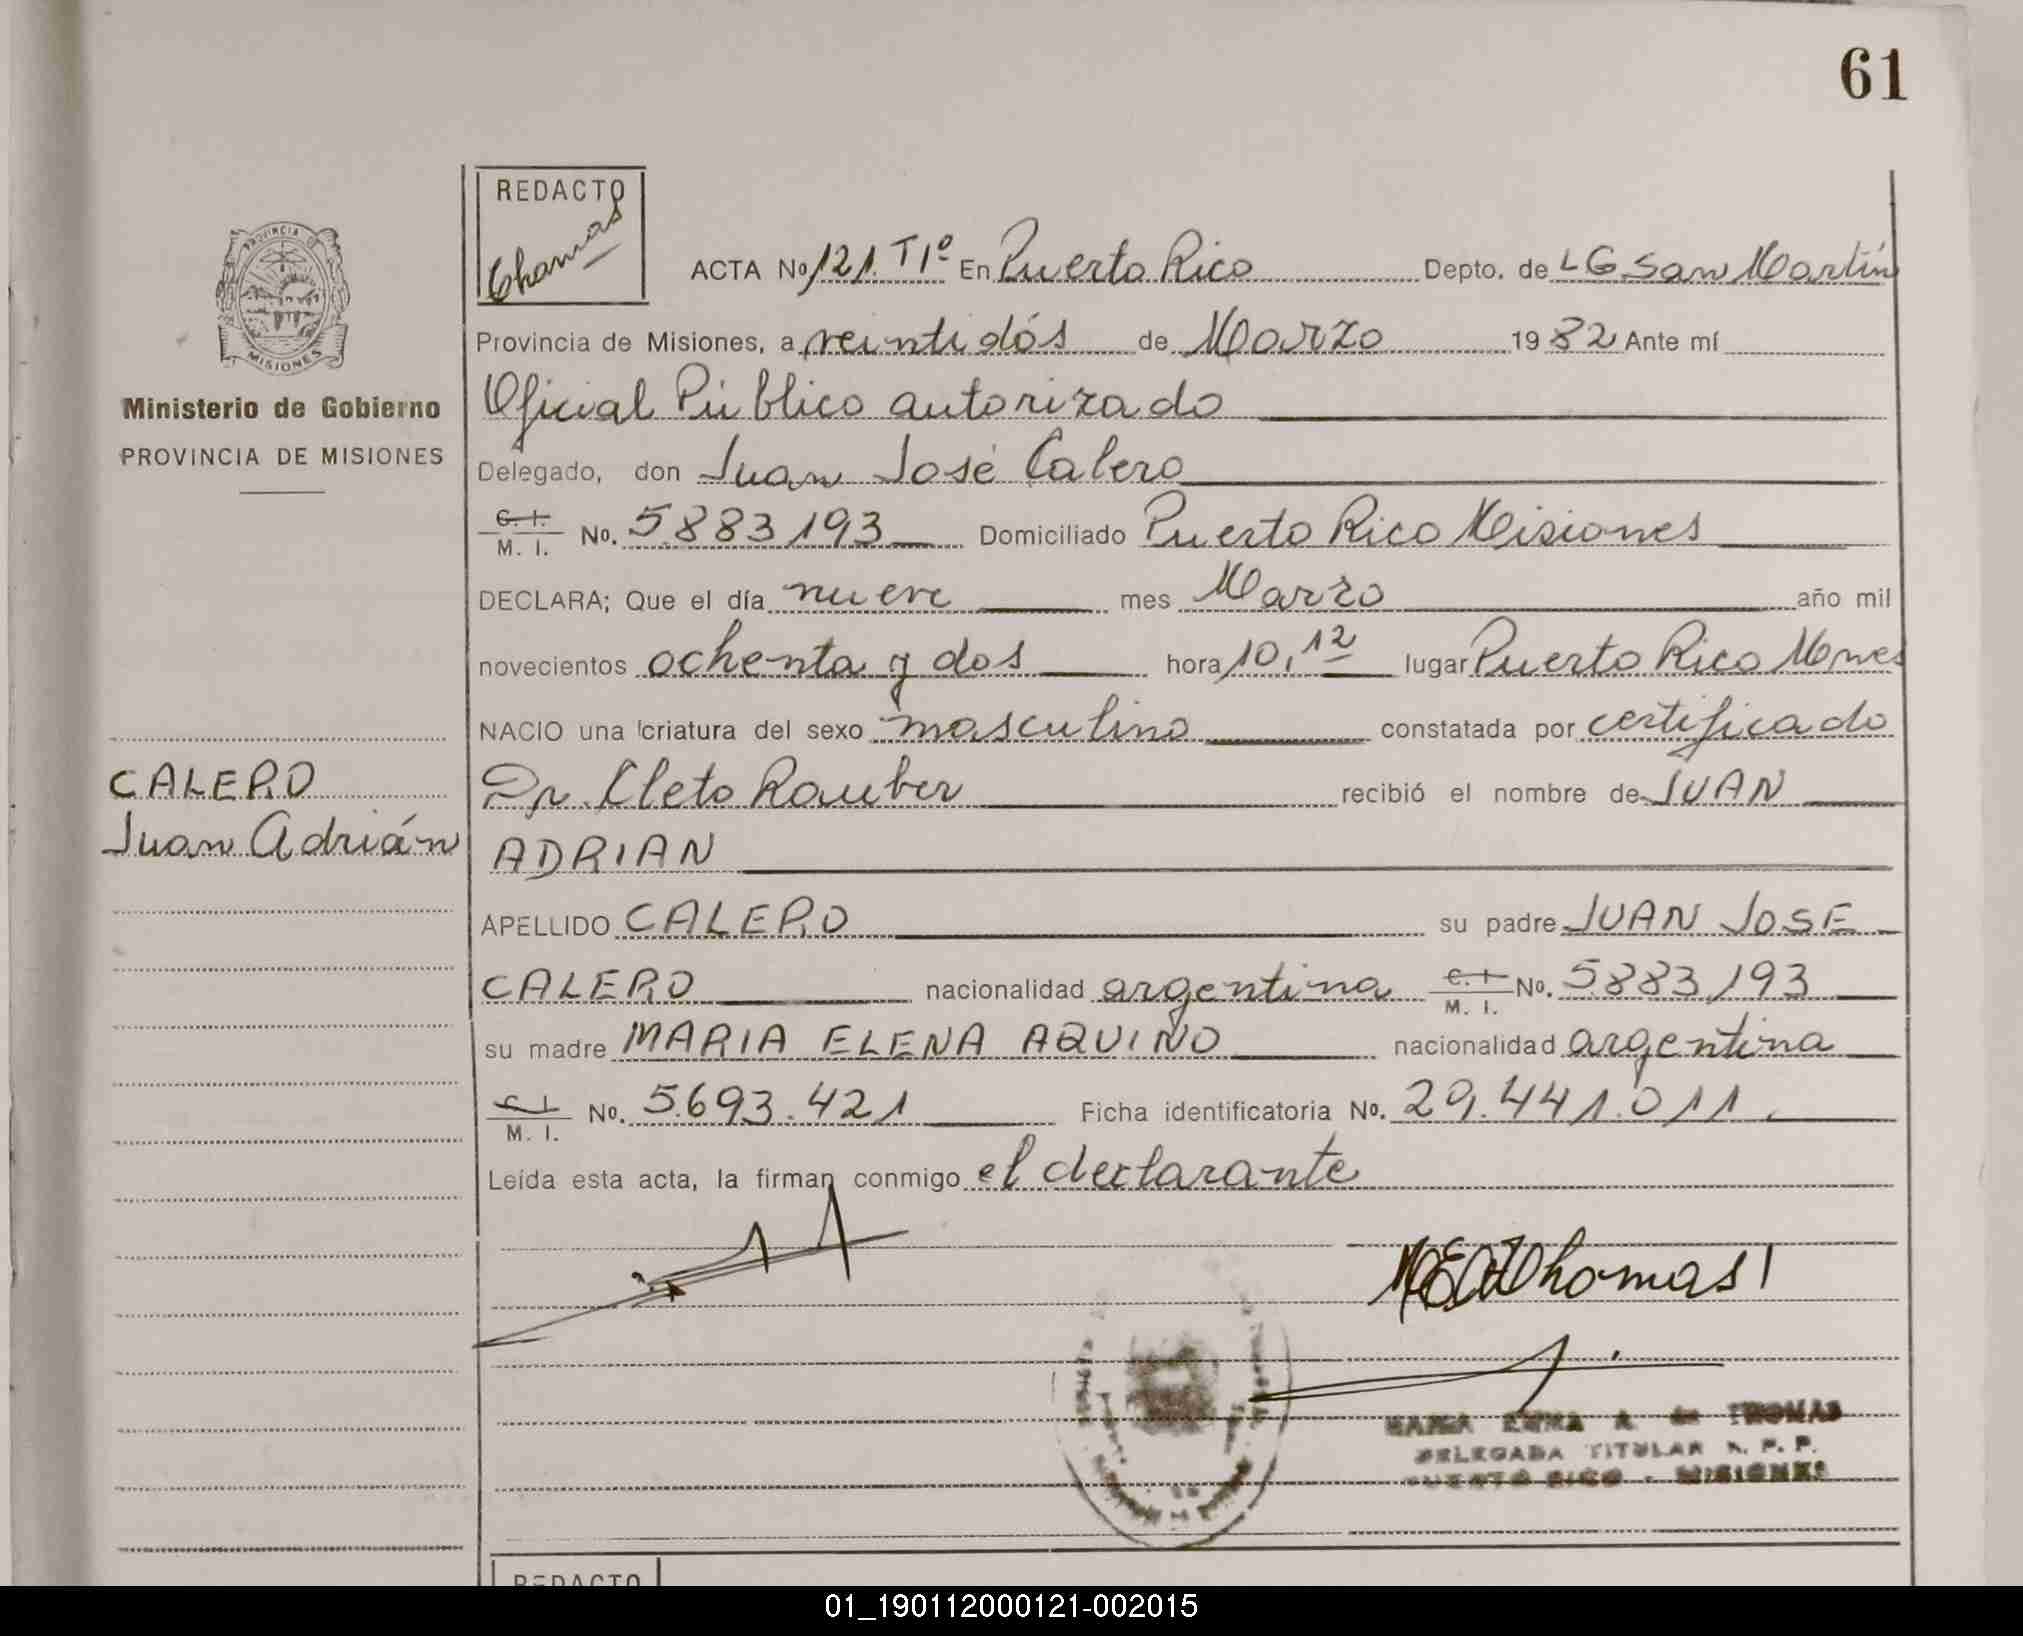 61
REDACTO
Thomas
PROVINCIA DE
MISIONES
Ministerio de Gobierno
PROVINCIA DE MISIONES
ACTA No 121. T1º En Puerto Rico Depto. de LG San Martín
Provincia de Misiones, a veintidós de Marzo 1982 Ante mí
Oficial Público autorizado
Delegado, don Juan José Calero
C. I. M. I. No. 5.883.193 Domiciliado Puerto Rico Misiones
DECLARA; Que el día nueve mes Marzo año mil
novecientos ochenta y dos hora 10,12 lugar Puerto Rico Mnes
NACIO una criatura del sexo masculino constatada por certificado
CALERO
Juan Adrián
Dr. Cleto Rauber recibió el nombre de JUAN
ADRIAN
APELLIDO CALERO su padre JUAN JOSE
CALERO nacionalidad argentina C. I. M. I. No. 5.883.193
su madre MARIA ELENA AQUINO nacionalidad argentina
C. I. M. I. No. 5.693.421 Ficha identificatoria No. 29.441.011.
Leída esta acta, la firman conmigo el declarante
Thomas
MARIA EMMA A. de THOMAS
DELEGADA TITULAR R. P. P.
PUERTO RICO - MISIONES
REDACTO
01_190112000121-002015